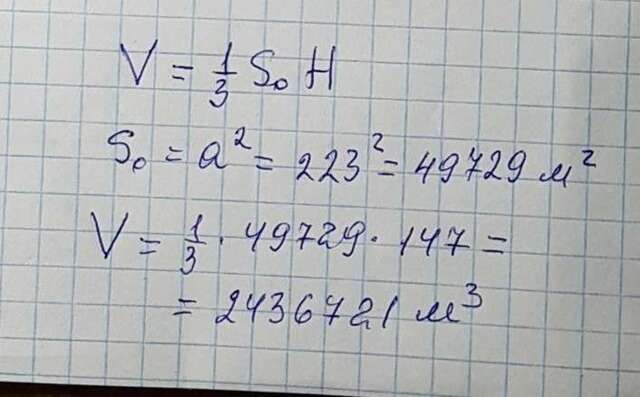 V = 1/3 S₀ H
S₀ = a² = 223² = 49729 м²
V = 1/3 · 49729 · 147 =
= 2436721 м³